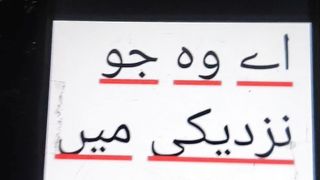 اے وہ جو
نزدیکی میں